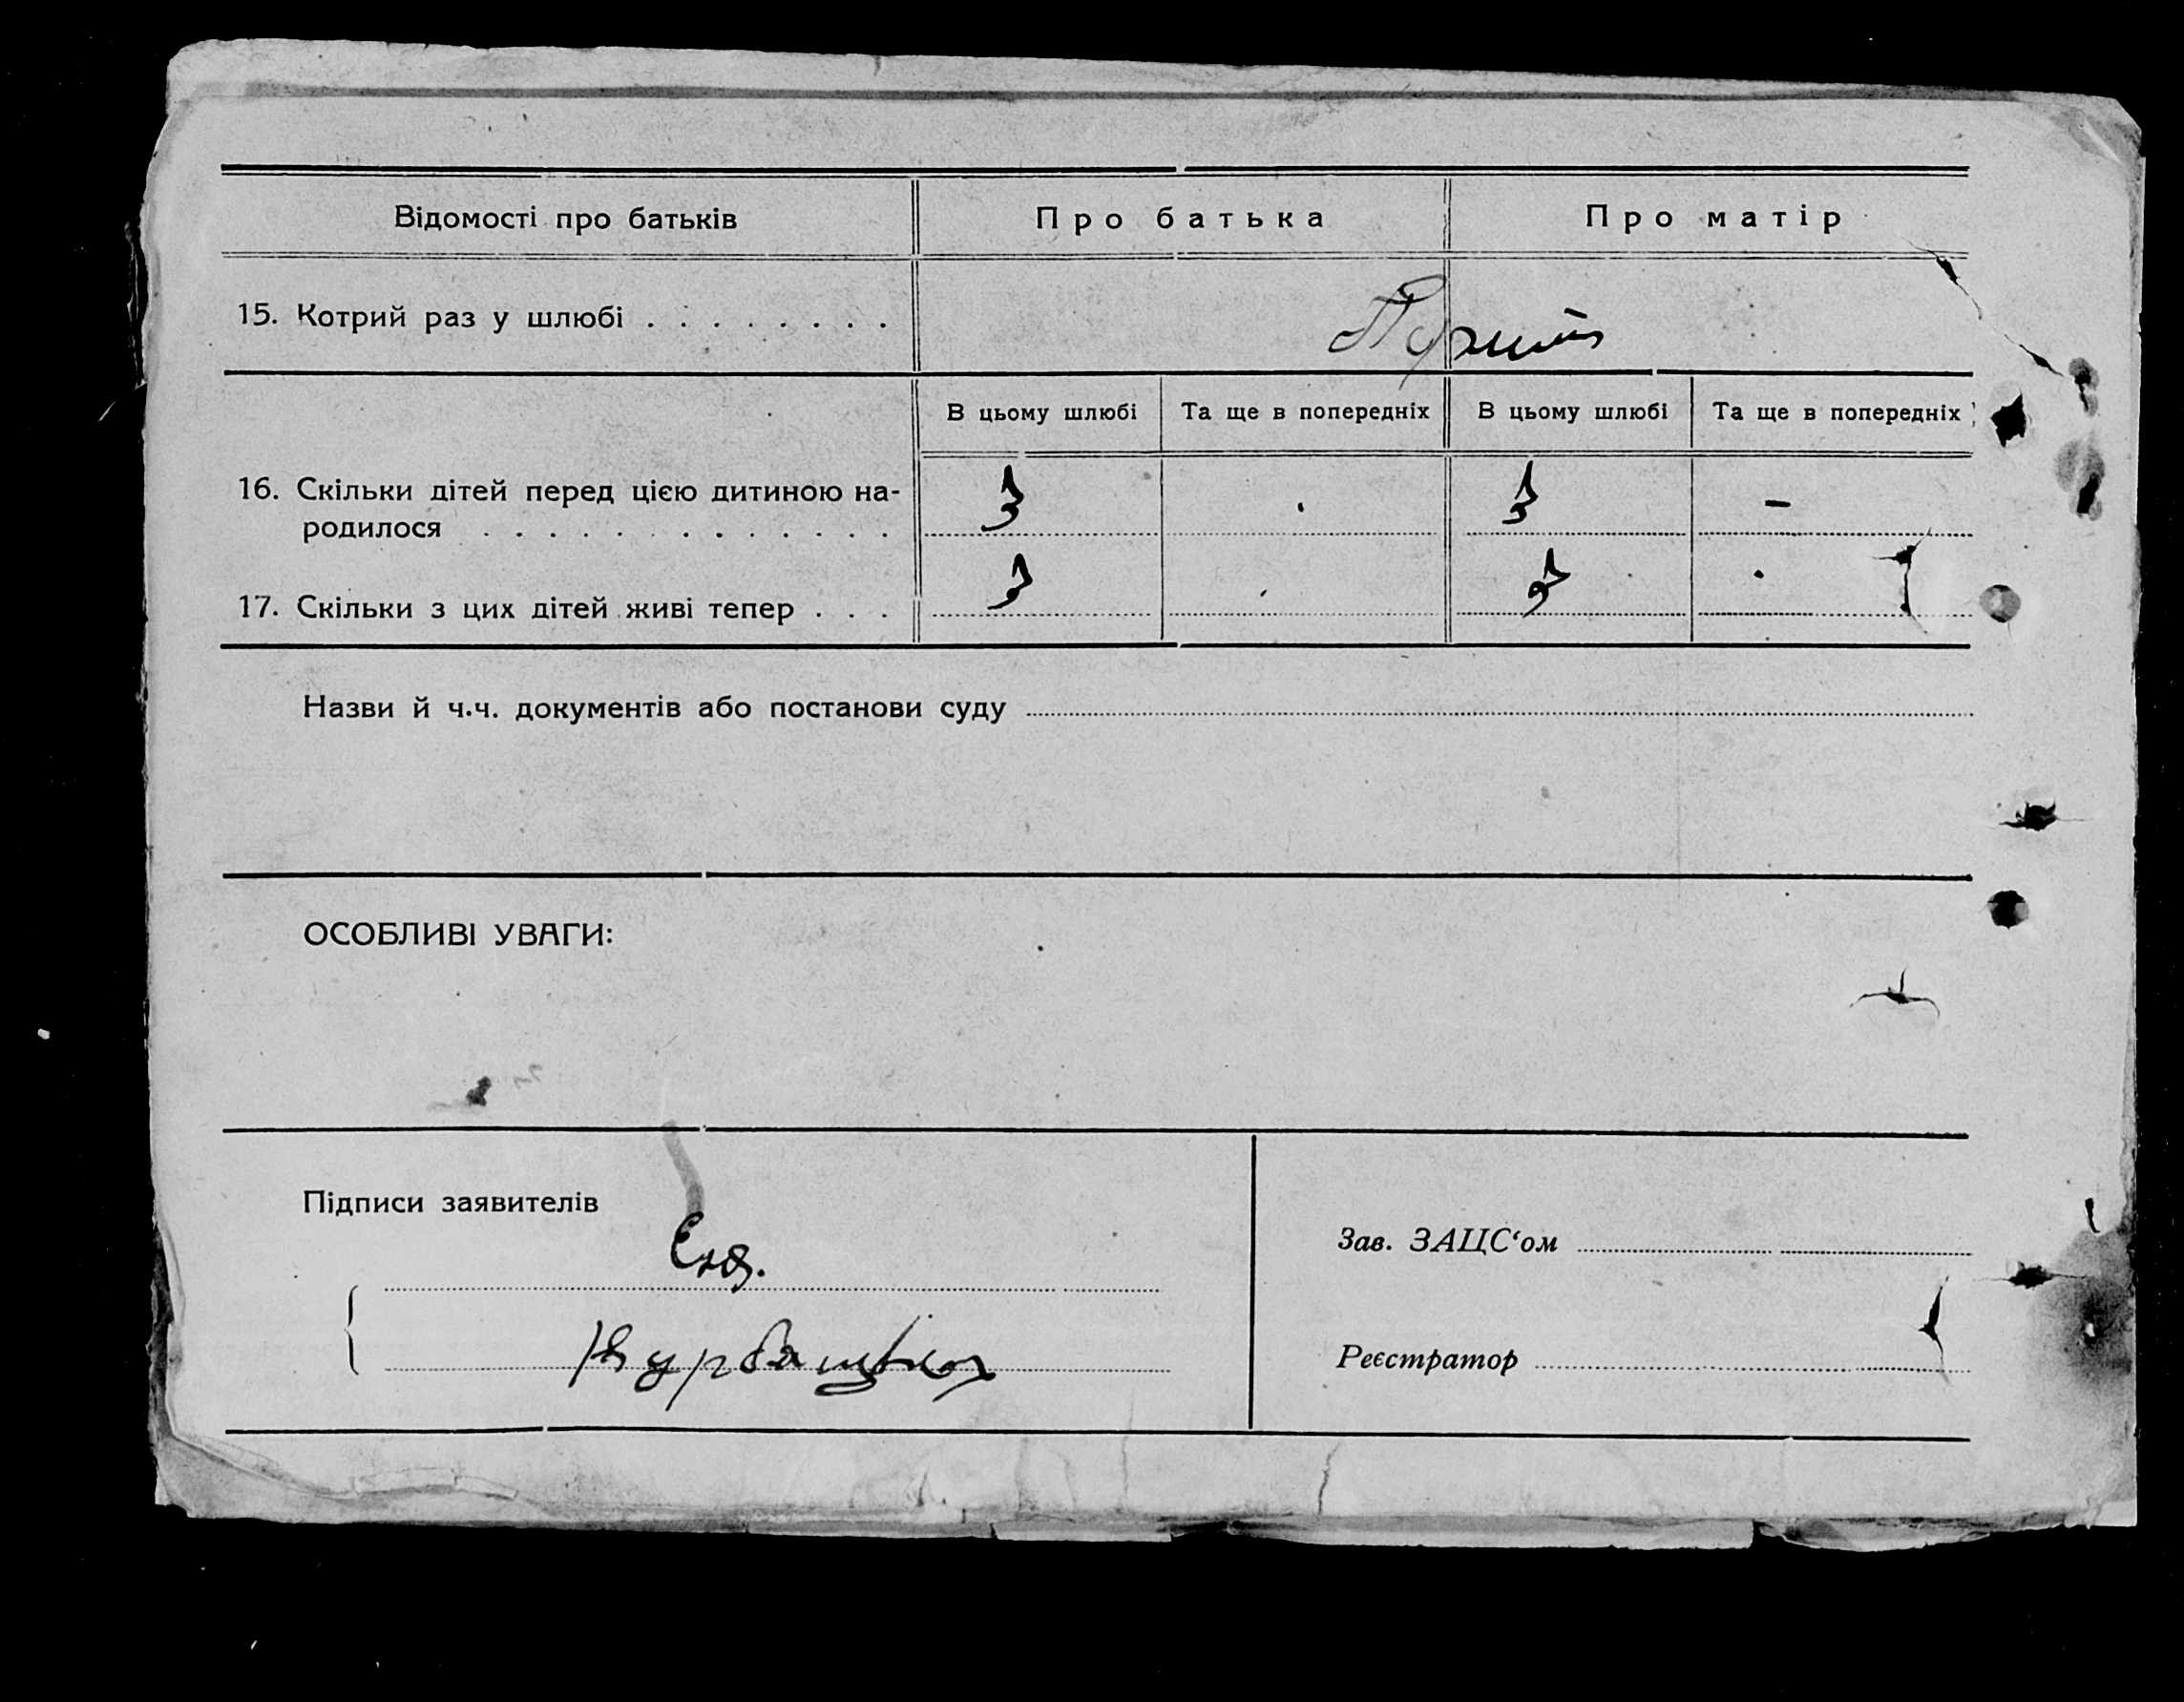 Відомості про батьків
Про батька
Про матір
15. Котрий раз у шлюбі . . . . . . . .
В цьому шлюбі
Та ще в попередніх
В цьому шлюбі
Та ще в попередніх
16. Скільки дітей перед цією дитиною на-
родилося . . . . . . . . . . . . .
3
3
-
17. Скільки з цих дітей живі тепер . . .
3
3
Назви й ч.ч. документів або постанови суду
ОСОБЛИВІ УВАГИ:
Підписи заявителів
Зав. ЗАЦС‘ом
Реєстратор